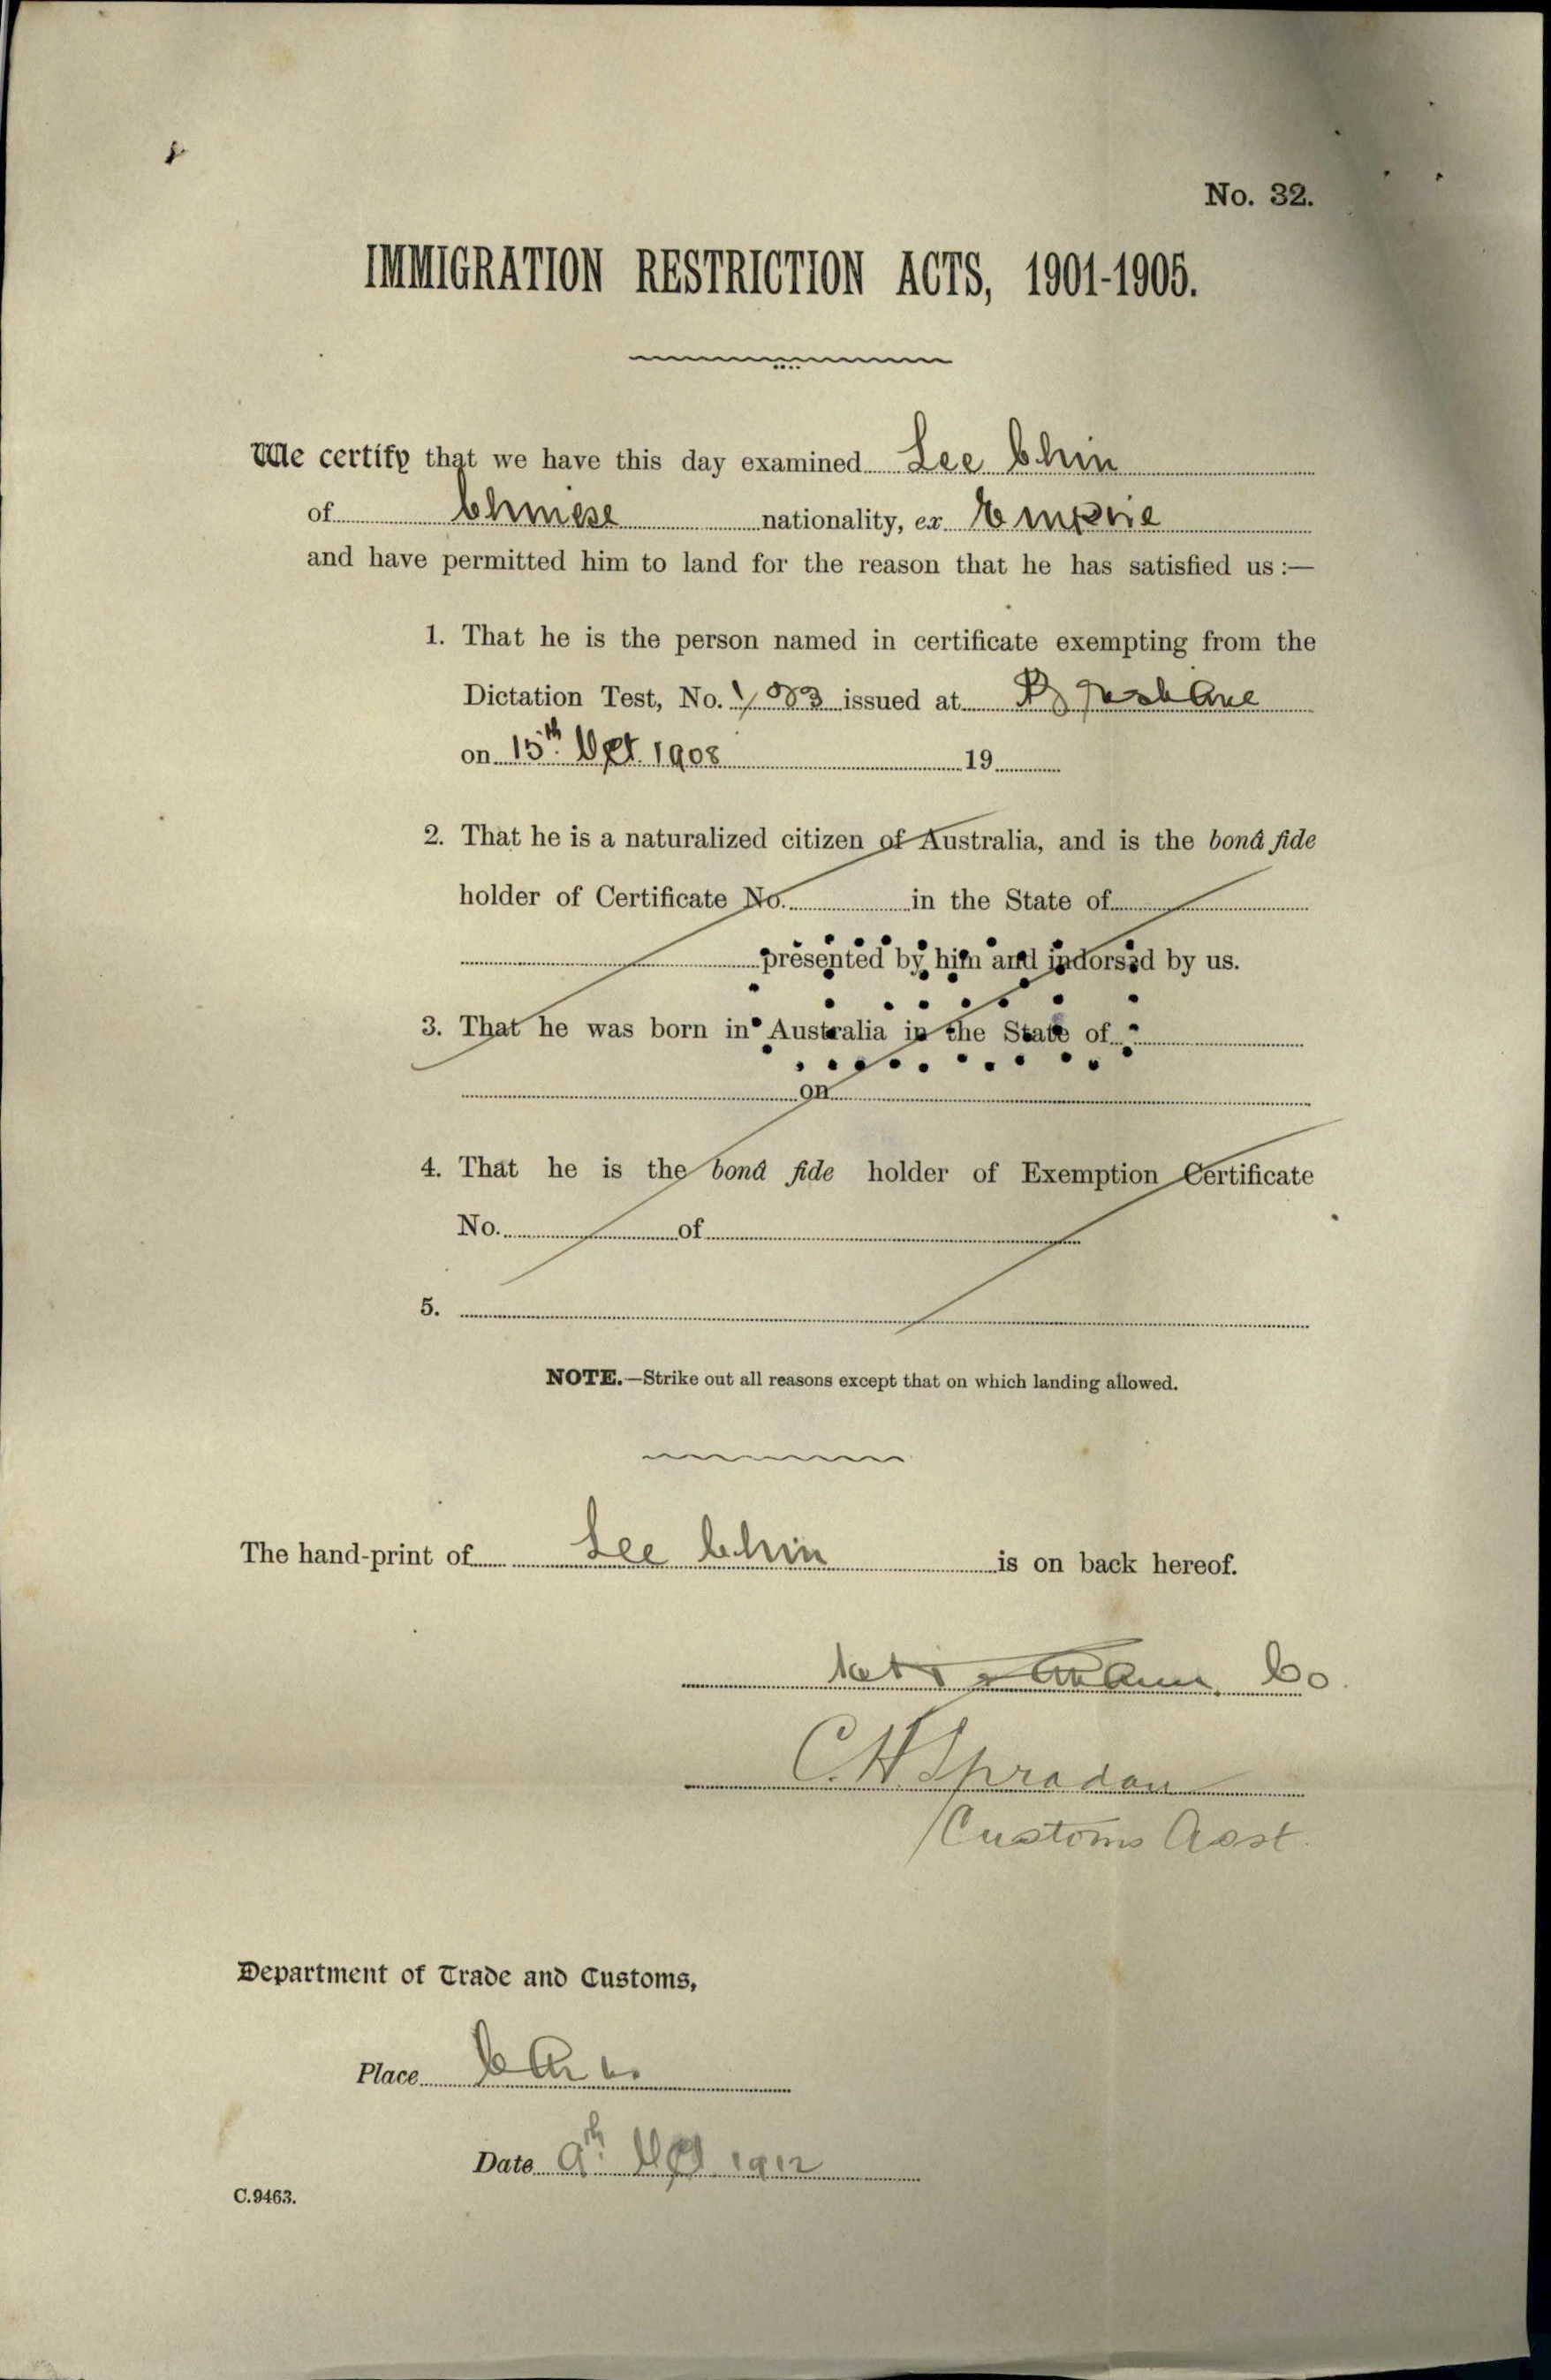 No. 32.
IMMIGRATION RESTRICTION ACTS, 1901-1905.
We certify that we have this day examined Lee Chin
of Chinese nationality, ex Empire
and have permitted him to land for the reason that he has satisfied us:—
1. That he is the person named in certificate exempting from the
Dictation Test, No. issued at Brisbane
on 15th. 1908 19
2. That he is a naturalized citizen of Australia, and is the bonâ fide
holder of Certificate No. in the State of
presented by him and indorsed by us.
3. That he was born in Australia in the State of
on
4. That he is the bonâ fide holder of Exemption Certificate
No. of
5.
NOTE.—Strike out all reasons except that on which landing allowed.
The hand-print of Lee Chin is on back hereof.
Co.
C. H.
Customs Asst.
Department of Trade and Customs,
Place
Date 9th. 1912
C.9463.